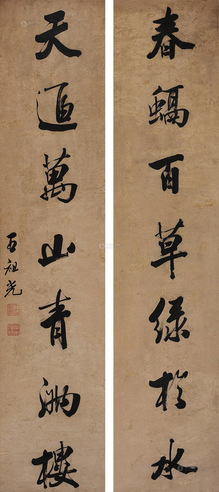 春蝺百草绿於水
天逼萬山青湧樓
石祖光